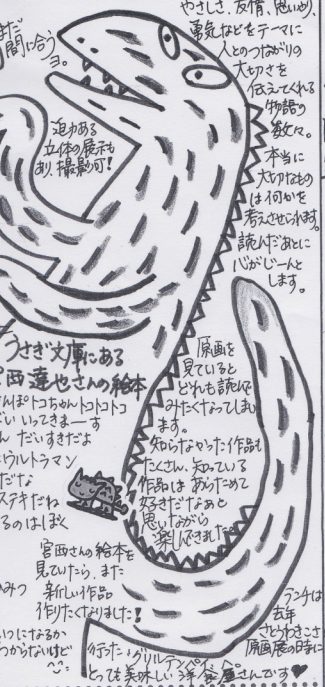 まだ
間に合う
ヨ。
やさしさ、友情、思いやり、
勇気などをテーマに
人とのつながりの
大切さを
伝えてくれる
物語の
数々。
本当に
大切なもの
は何かを
考えさせられます。
読んだあとに
心がじーんと
します。
迫力ある
立体の展示も
あり、撮影可!
うさぎ文庫にある
西達也さんの絵本
んぽトコちゃんトコトコトコ
いってきまーす
ん だいすきだよ
ウルトラマン
だな
ステキだね
るのはぼく
原画を
見ていると
どれも読んで
みたくなってしまい
ます。
知らなかった作品も
たくさん、知っている
作品はあらためて
好きだなぁと
思いながら
楽しんできました。
宮西さんの絵本を
見ていたら、また
新しい作品
作りたくなりました!
ひみつ
いつになるか
つからないけど
ランチは
去年
さとうわきこさ
原画展の時に
行った、グリルテンペイへ。
とっても美味しい洋食屋さんです♥